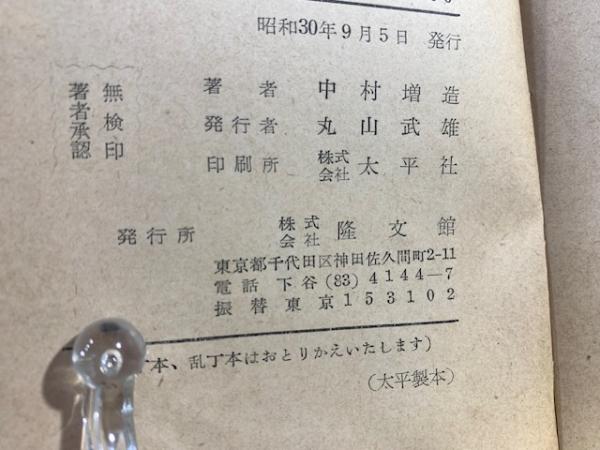 昭和30年9月5日 発行
著者 中村増造
発行者 丸山武雄
印刷所 株式会社 太平社
無検印
著者承認
発行所 株式会社 隆文館
東京都千代田区神田佐久間町2-11
電話 下谷(83)4144—7
振替東京153102
丁本、乱丁本はおとりかえいたします)
(太平製本)